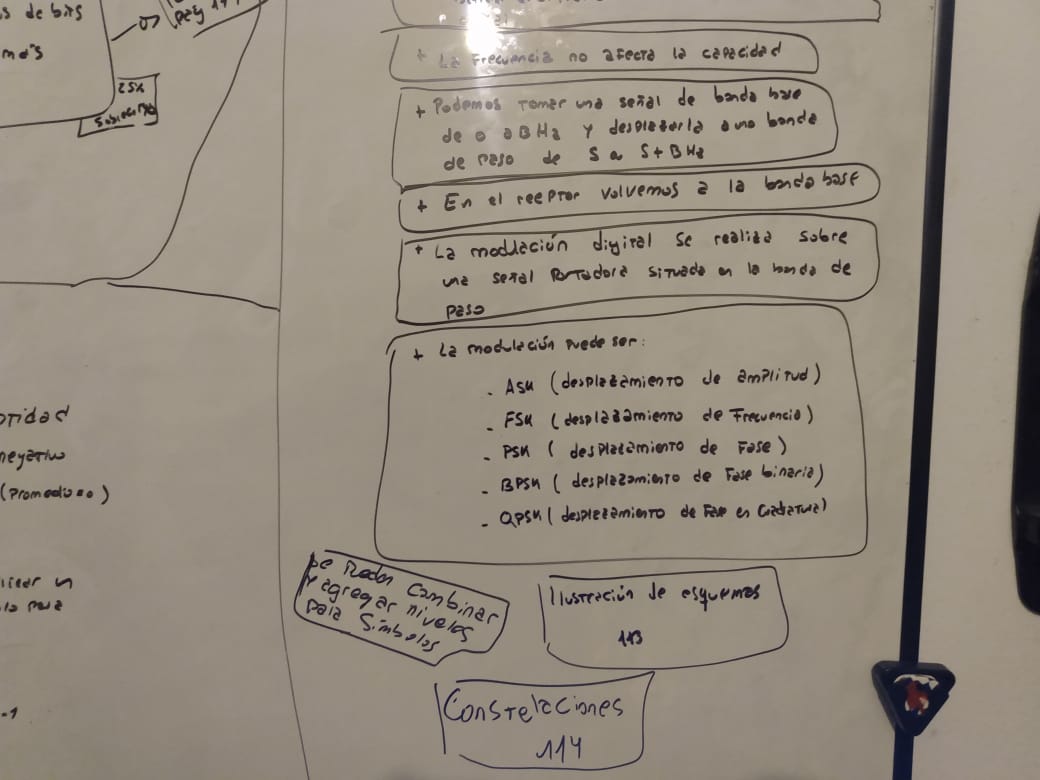 s de bits
más
pag 11
25%
+ La Frecuencia no afecta la capacidad
+ Podemos tomar una señal de banda base
de 0 a B Hz y desplazarla a una banda
de paso de S a S+B Hz
+ En el receptor volvemos a la banda base
+ La modulación digital se realiza sobre
una señal portadora situada en la banda de
paso
+ La modulación puede ser:
- ASK (desplazamiento de amplitud)
- FSK (desplazamiento de Frecuencia)
- PSK ( desplazamiento de Fase)
- BPSK ( desplazamiento de Fase binaria)
- QPSK ( desplazamiento de Fase en Cuadratura)
Se pueden combinar
y agregar niveles
para símbolos
Ilustración de esquemas
113
Constelaciones
114
negativo
-1